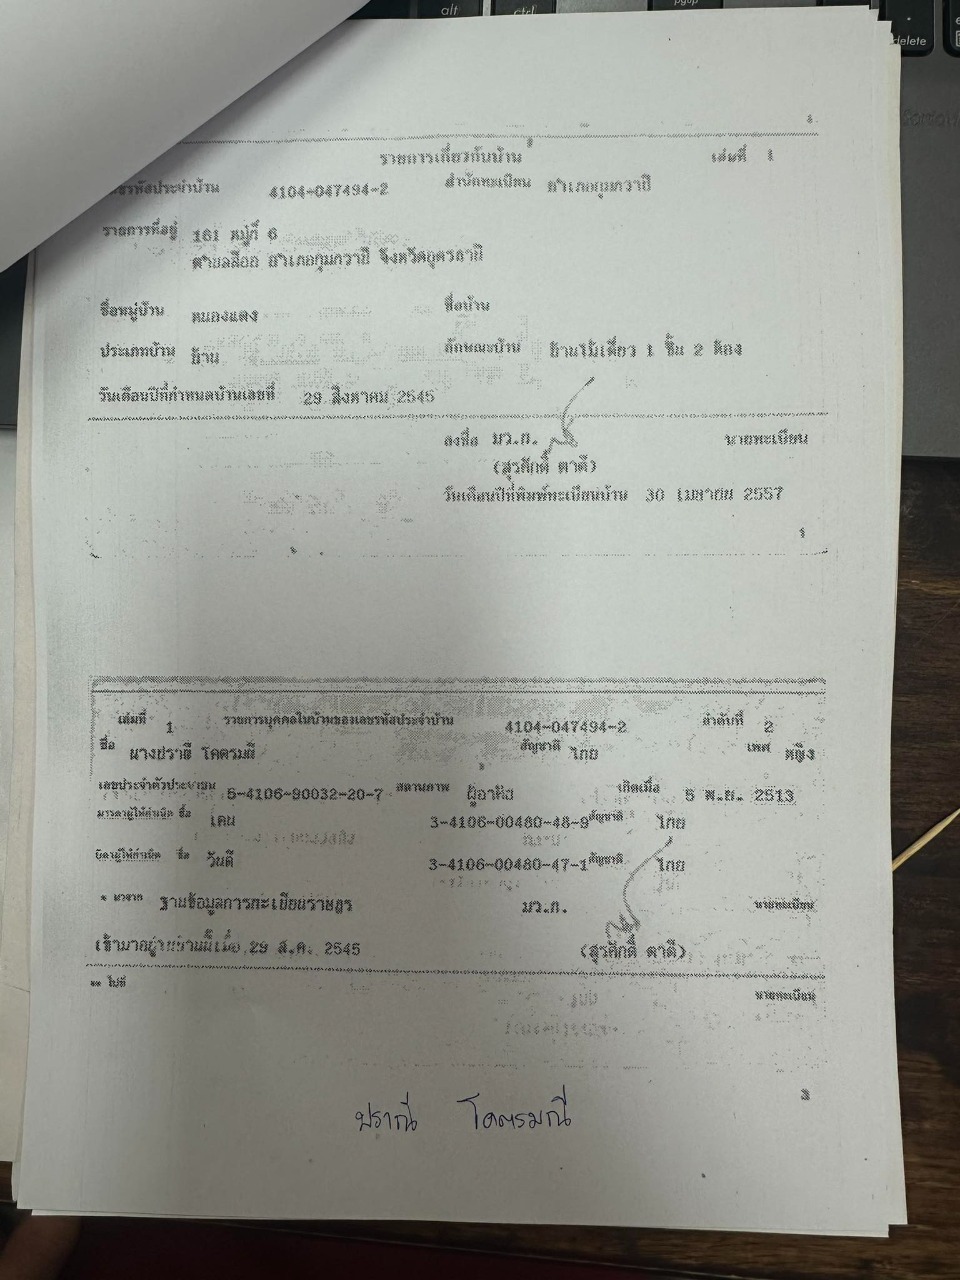 alt ctrl pgup delete
รายการเกี่ยวกับบ้าน เล่มที่ 1
รหัสประจำบ้าน 4104-047494-2 สำนักทะเบียน อำเภอกุมภวาปี
รายการที่อยู่ 161 หมู่ที่ 6
ตำบลสีออ อำเภอกุมภวาปี จังหวัดอุดรธานี
ชื่อหมู่บ้าน หนองแดง ชื่อบ้าน
ประเภทบ้าน บ้าน ลักษณะบ้าน บ้านไม้เดี่ยว 1 ชั้น 2 ห้อง
วันเดือนปีที่กำหนดบ้านเลขที่ 29 สิงหาคม 2545
ลงชื่อ มว.ก. นายทะเบียน
(สุรศักดิ์ ตาดี)
วันเดือนปีที่พิมพ์ทะเบียนบ้าน 30 เมษายน 2557
1
เล่มที่ 1 รายการบุคคลในบ้านของเลขรหัสประจำบ้าน 4104-047494-2 ลำดับที่ 2
ชื่อ นางปราณี โคตรมณี สัญชาติ ไทย เพศ หญิง
เลขประจำตัวประชาชน 5-4106-90032-20-7 สถานภาพ ผู้อาศัย เกิดเมื่อ 5 พ.ย. 2513
มารดาผู้ให้กำเนิด ชื่อ เคน 3-4106-00480-48-9 สัญชาติ ไทย
บิดาผู้ให้กำเนิด ชื่อ วันดี 3-4106-00480-47-1 สัญชาติ ไทย
* มาจาก ฐานข้อมูลการทะเบียนราษฎร มว.ก. นายทะเบียน
เข้ามาอยู่ในบ้านนี้เมื่อ 29 ส.ค. 2545 (สุรศักดิ์ ตาดี)
** ไปที่ นายทะเบียน
3
ปราณี โคตรมณี